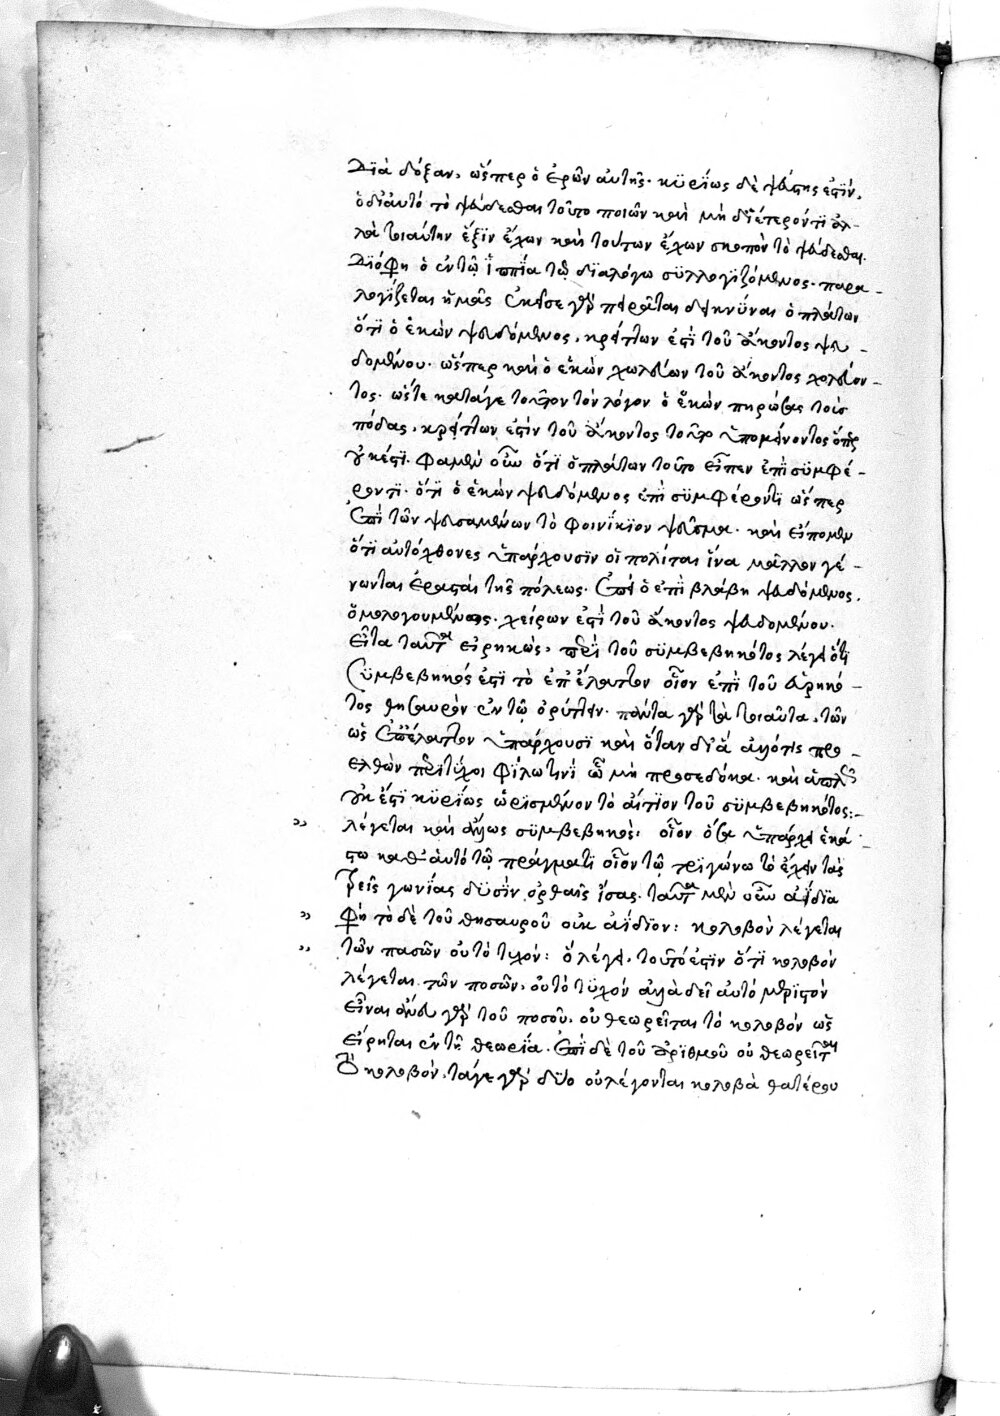 διὰ δόξαν, ὥσπερ ὁ ἐρῶν αὐτῆς. κυρίως δὲ ψεύστης ἐστὶν,
ὁ δι' αὐτὸ τὸ ψεύδεσθαι τοῦτο ποιῶν καὶ μὴ δι' ἕτερόν τι ἀλ-
λὰ τοιαύτην ἕξιν ἔχων καὶ τούτων ἔχων σκοπὸν τὸ ψεύδεσθαι.
Διόφη ὁ ἐν τῷ ἱππίᾳ τῷ διαλόγω συλλογιζόμενος. παρα-
λογίζεται ἡμᾶς ἐκεῖσε γὰρ πειρᾶται δεικνύναι ὁ πλάτων
ὅτι ὁ ἑκὼν ψευδόμενος, κρείττων ἐστὶ τοῦ ἄκοντος ψευ-
δομένου. ὥσπερ καὶ ὁ ἑκὼν χωλεύων τοῦ ἄκοντος χολεύον-
τος. ὥστε κατάγε τοῦτον τὸν λόγον ὁ ἑκὼν πηρώσας τοὺς
πόδας, κρείττων ἐστὶν τοῦ ἄκοντος τοῦτο ὑπομείναντος ὅπερ
οὐκ ἔστι. φαμὲν οὖν ὅτι ὁ πλάτων τοῦτο εἶπεν ἐπὶ συμφέ-
ροντι. ὅτι ὁ ἑκὼν ψευδόμενος ἐπὶ συμφέροντι ὥσπερ
ἐπὶ τῶν ψευσαμένων τὸ φοινίκιον ψεῦσμα. καὶ εἰπομεν
ὅτι αὐτόχθονες ὑπάρχουσιν οἱ πολίται ἵνα μᾶλλον γέ-
νωνται ἐρασταὶ τῆς πόλεως. ἐπεὶ ὁ ἐπὶ βλάβη ψευδόμενος,
ὁμολογουμένως. χείρων ἐστὶ τοῦ ἄκοντος ψευδομένου.
Εἶτα ταῦτα εἰρηκὼς, περὶ τοῦ συμβεβηκότος λέγει ὅτι
συμβεβηκός ἐστι τὸ ἐπ' ἔλαττον οἷον ἐπὶ τοῦ εὑρηκό-
τος θησαυρὸν ἐν τῷ ὀρύττειν. πάντα γὰρ τὰ τοιαῦτα, τῶν
ὡς ἐπ' ἔλαττον ὑπάρχουσι καὶ ὅταν δι' ἃ ἀλλότις προ-
ελθὼν περιτύχοι φίλω τινὶ ᾧ μὴ προσεδόκα. καὶ ἁπλῶς
οὐκ ἔστι κυρίως ὡρισμένον τὸ αἴτιον τοῦ συμβεβηκότος:-
λέγεται καὶ ἄλλως συμβεβηκὸς, οἷον ὅσα ὑπάρχει ἑκά-
στω καθ' αὑτὸ τῷ πράγματι οἷον τῷ τριγώνω τὸ ἔχειν τὰς
τρεῖς γωνίας δυσὶν ὀρθαῖς ἴσας. ταῦτα μὲν οὖν ἀΐδια
φη τὸ δὲ τοῦ θησαυροῦ οὐκ ἀΐδιον: κολοβὸν λέγεται
τῶν πασῶν οὐ τὸ τυχόν: ὃ λέγει, τοῦτό ἐστιν ὅτι κολοβὸν
λέγεται τῶν ποσῶν, οὐ τὸ τυχόν ἀλλὰ δεῖ αὐτὸ μεριστὸν
εἶναι ἄνευ γὰρ τοῦ ποσοῦ, οὐ θεωρεῖται τὸ κολοβόν ὡς
εἴρηται ἐν τῇ θεωρίᾳ. ἐπὶ δὲ τοῦ ἀριθμοῦ οὐ θεωρεῖται
τὸ κολοβόν. τάγε γὰρ δύο οὐ λέγονται κολοβὰ θατέρου